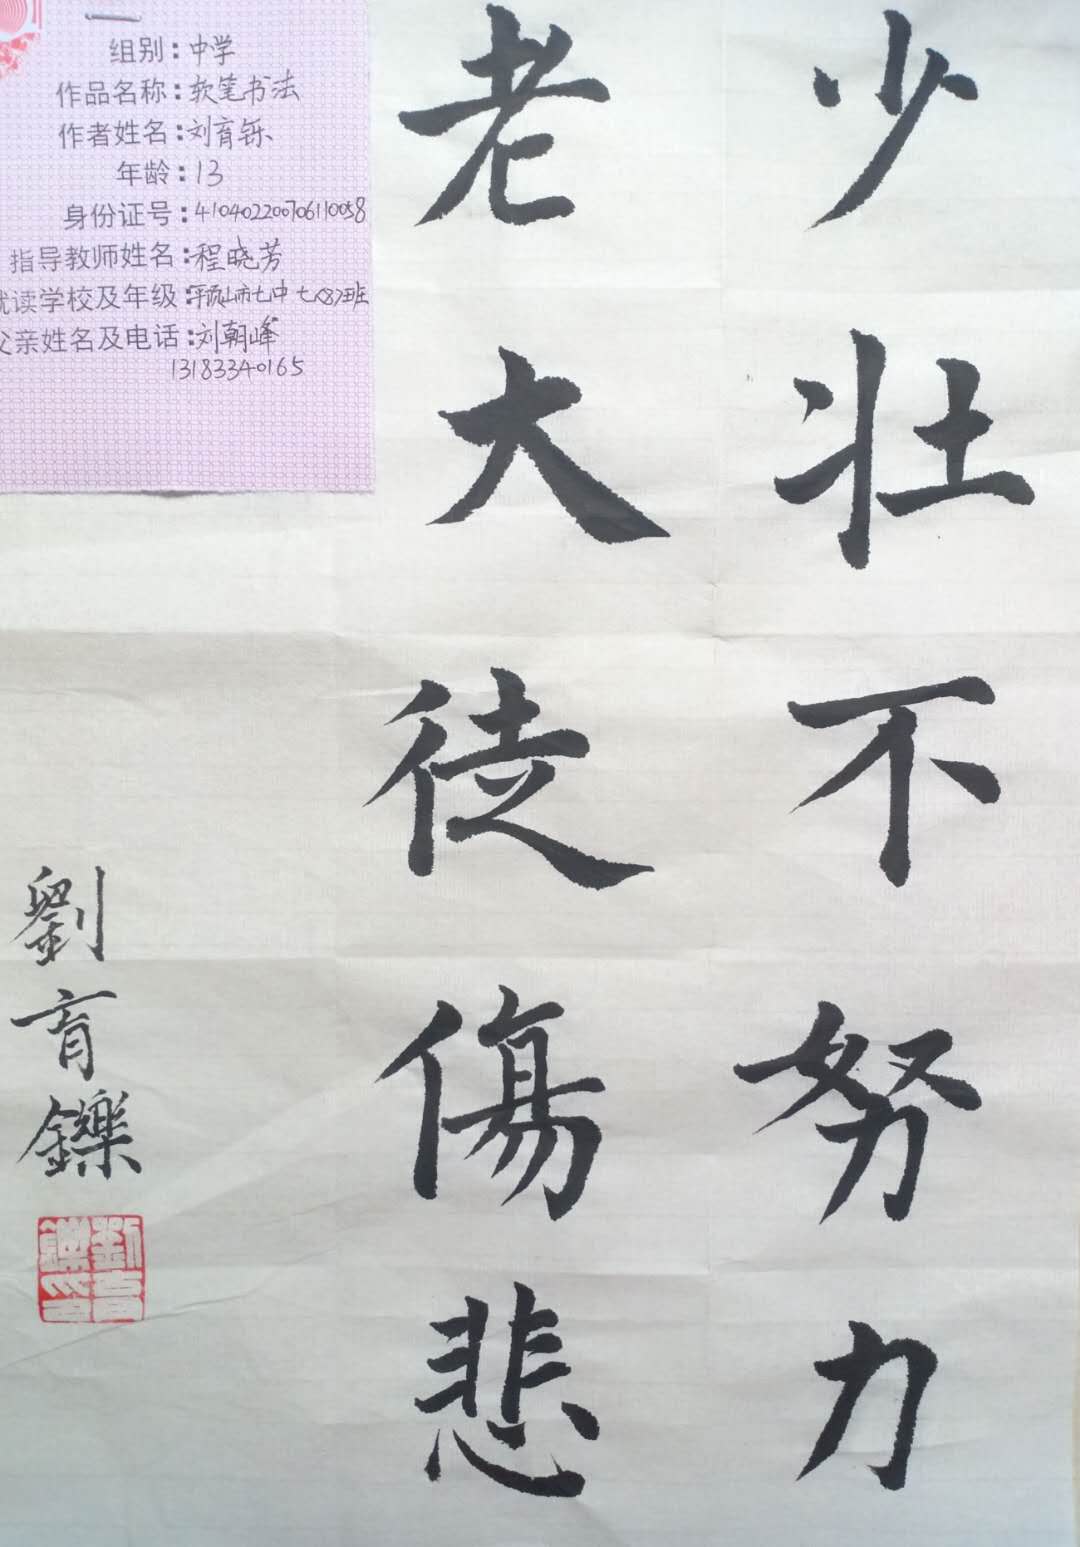 组别：中学
作品名称：软笔书法
作者姓名：刘育铄
年龄：13
身份证号：410402200706110058
指导教师姓名：程晓芳
就读学校及年级：平顶山市七中 七〈8〉班
父亲姓名及电话：刘朝峰
13183340165
少壮不努力
老大徒傷悲
劉育鑠